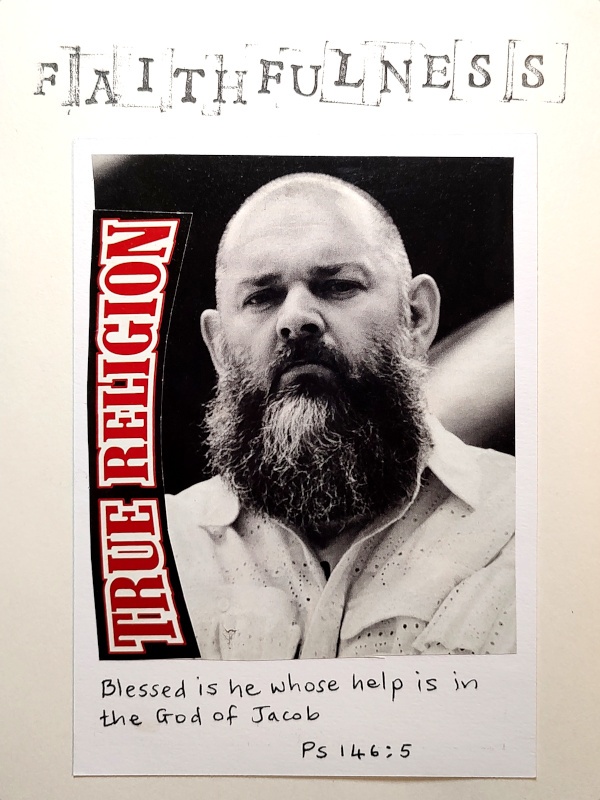 FAITHFULNESS
TRUE RELIGION
Blessed is he whose help is in
the God of Jacob
Ps 146:5